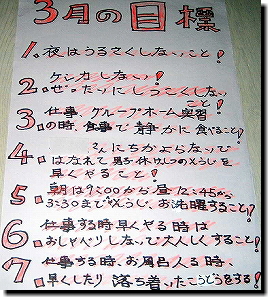 3月の目標
1. 夜はうるさくしないこと!
2. ケンカしない!
ぜったいにしつこくしない
こと!
3. 仕事、グループホーム実習
の時、食事で静かに食べること!
4. さんにちかよらないで
はなれて男子休けいしつのそうじを
早くやること!
5. 朝は9:00から昼12:45から
3:30まで そうじ、お洗曜すること!
6. 仕事する時早くやる時は
おしゃべりしないで大人しくすること!
7. 仕事する時、お風呂入る時、
早くしたり落ち着いたこうどうをする!